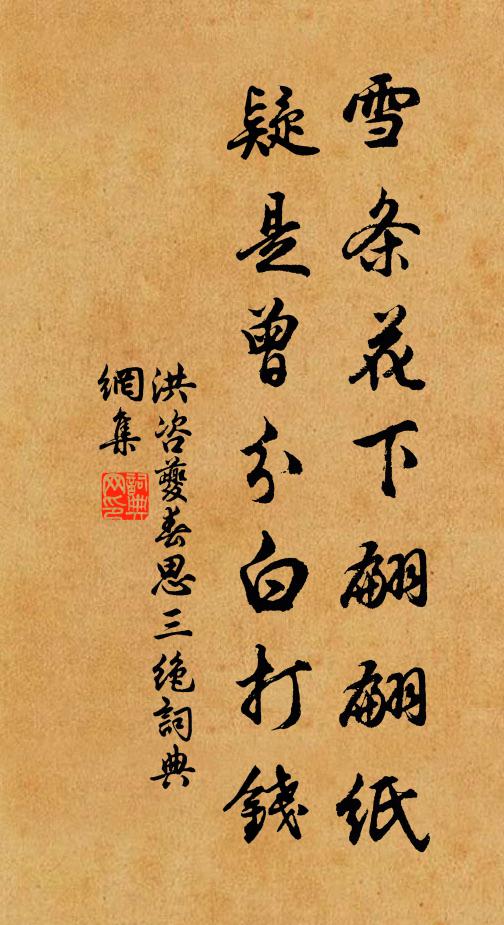 雪条花下翩翩纸
疑是曾分白打錢
洪咨夔春思三绝詞典
網集
詞典
网印